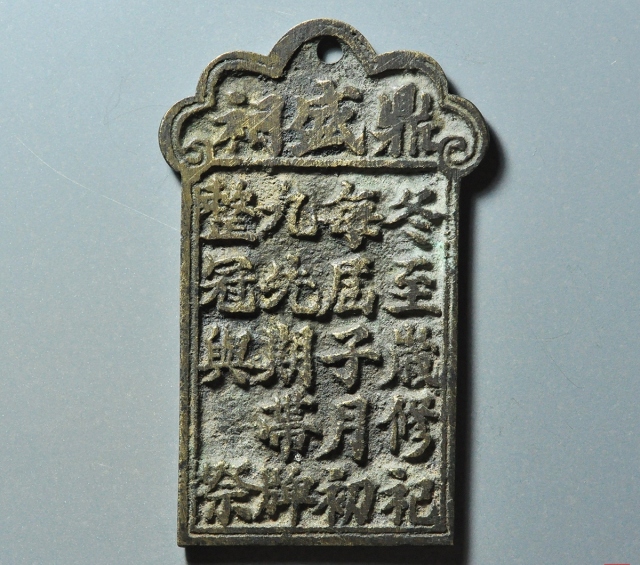 鼎盛祠
冬至歲修祀
每屆子月初
九先期帶牌
整冠與祭